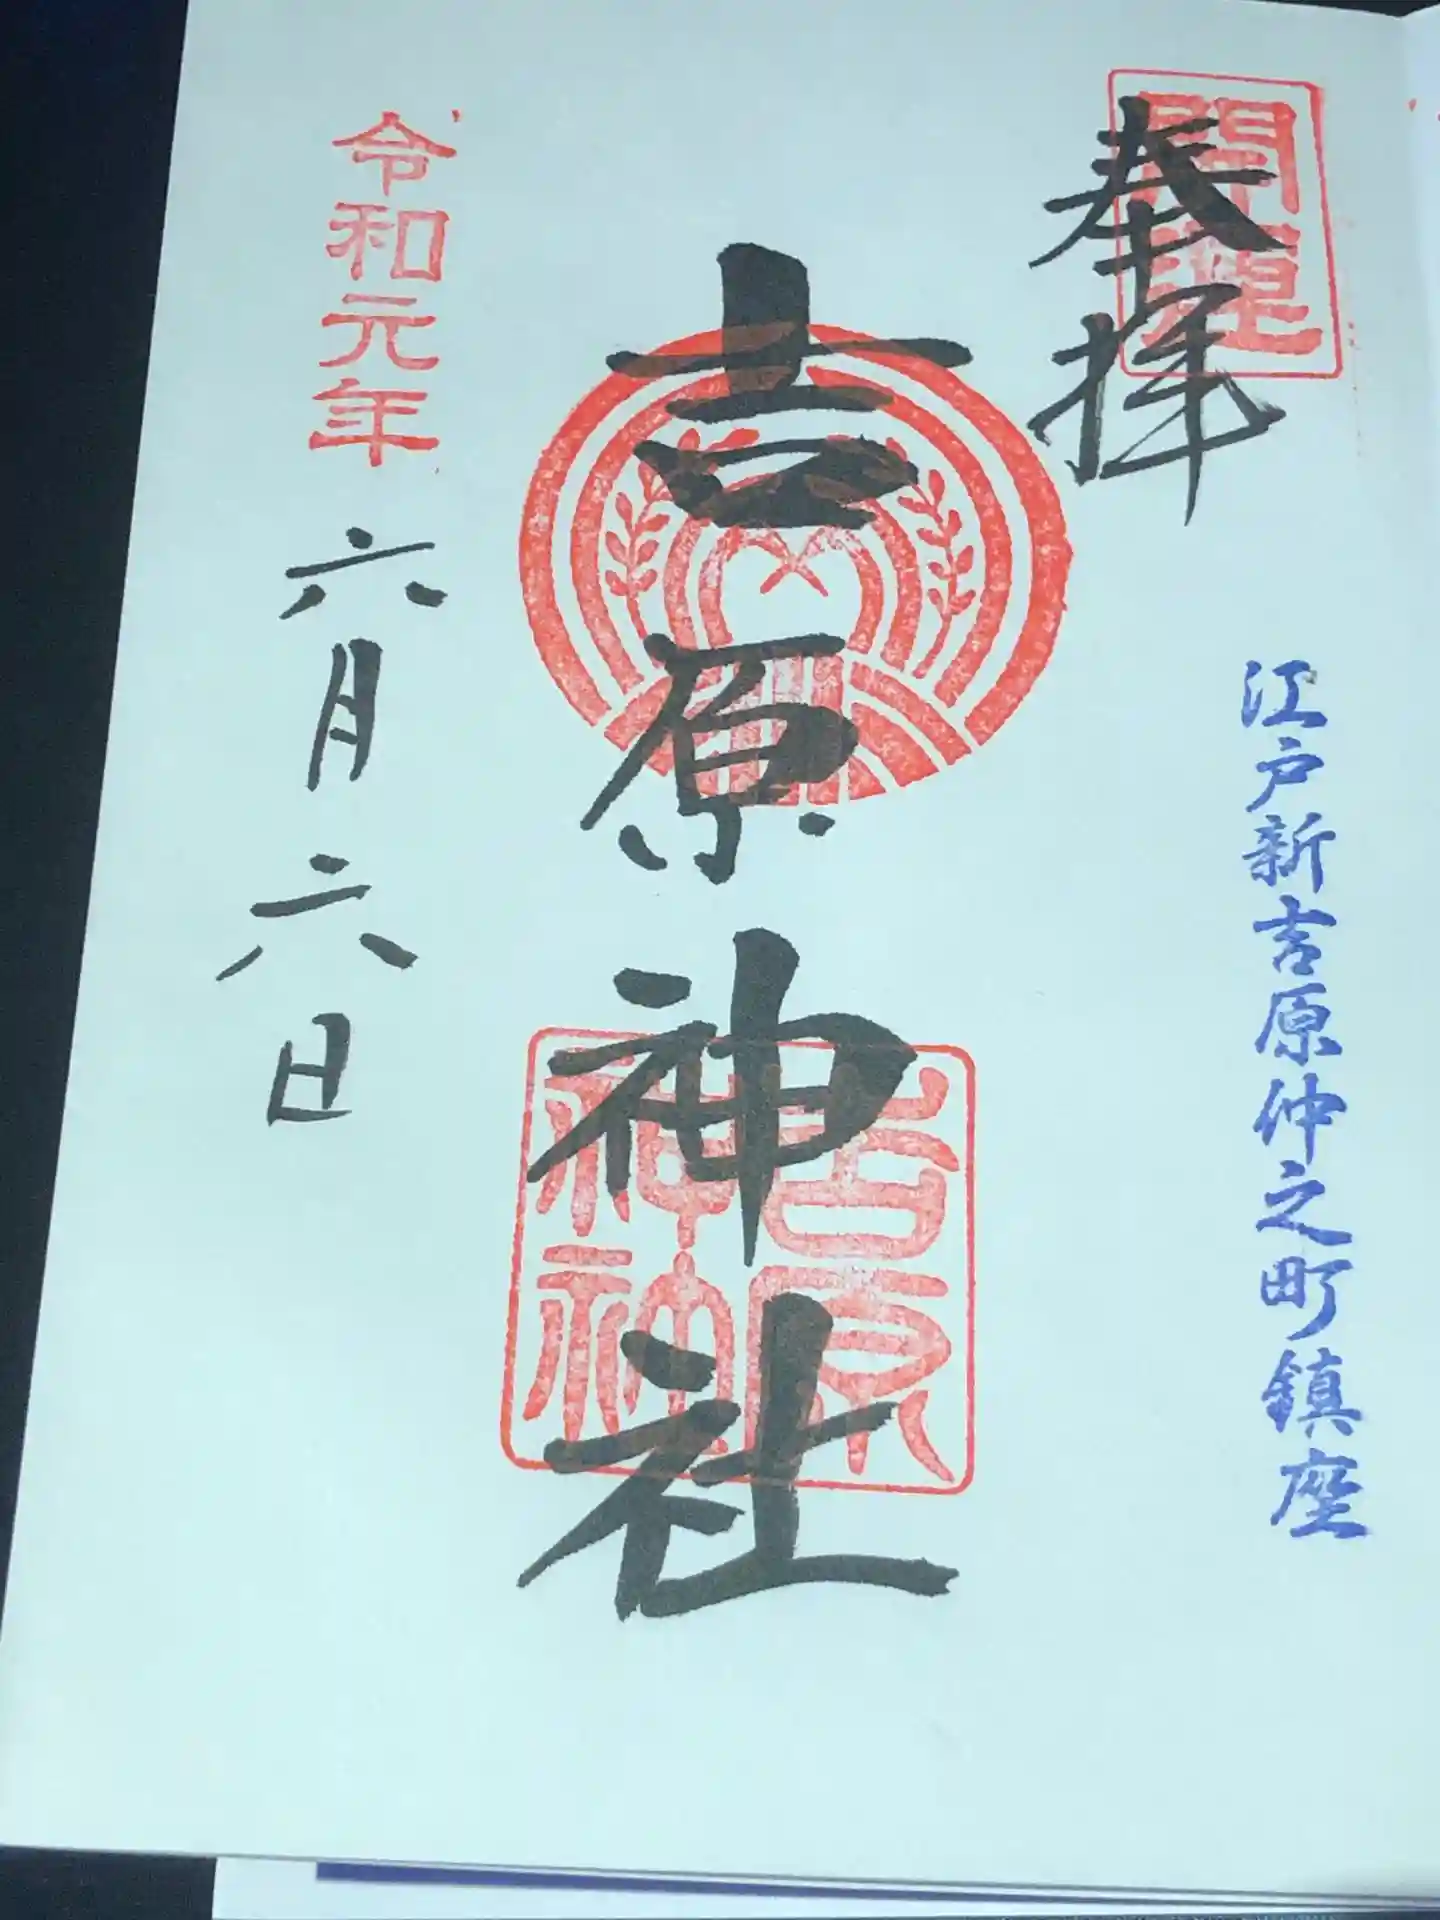 開運
奉拝
江戸新吉原仲之町鎮座
吉原神社
吉原
神社
令和元年
六月六日